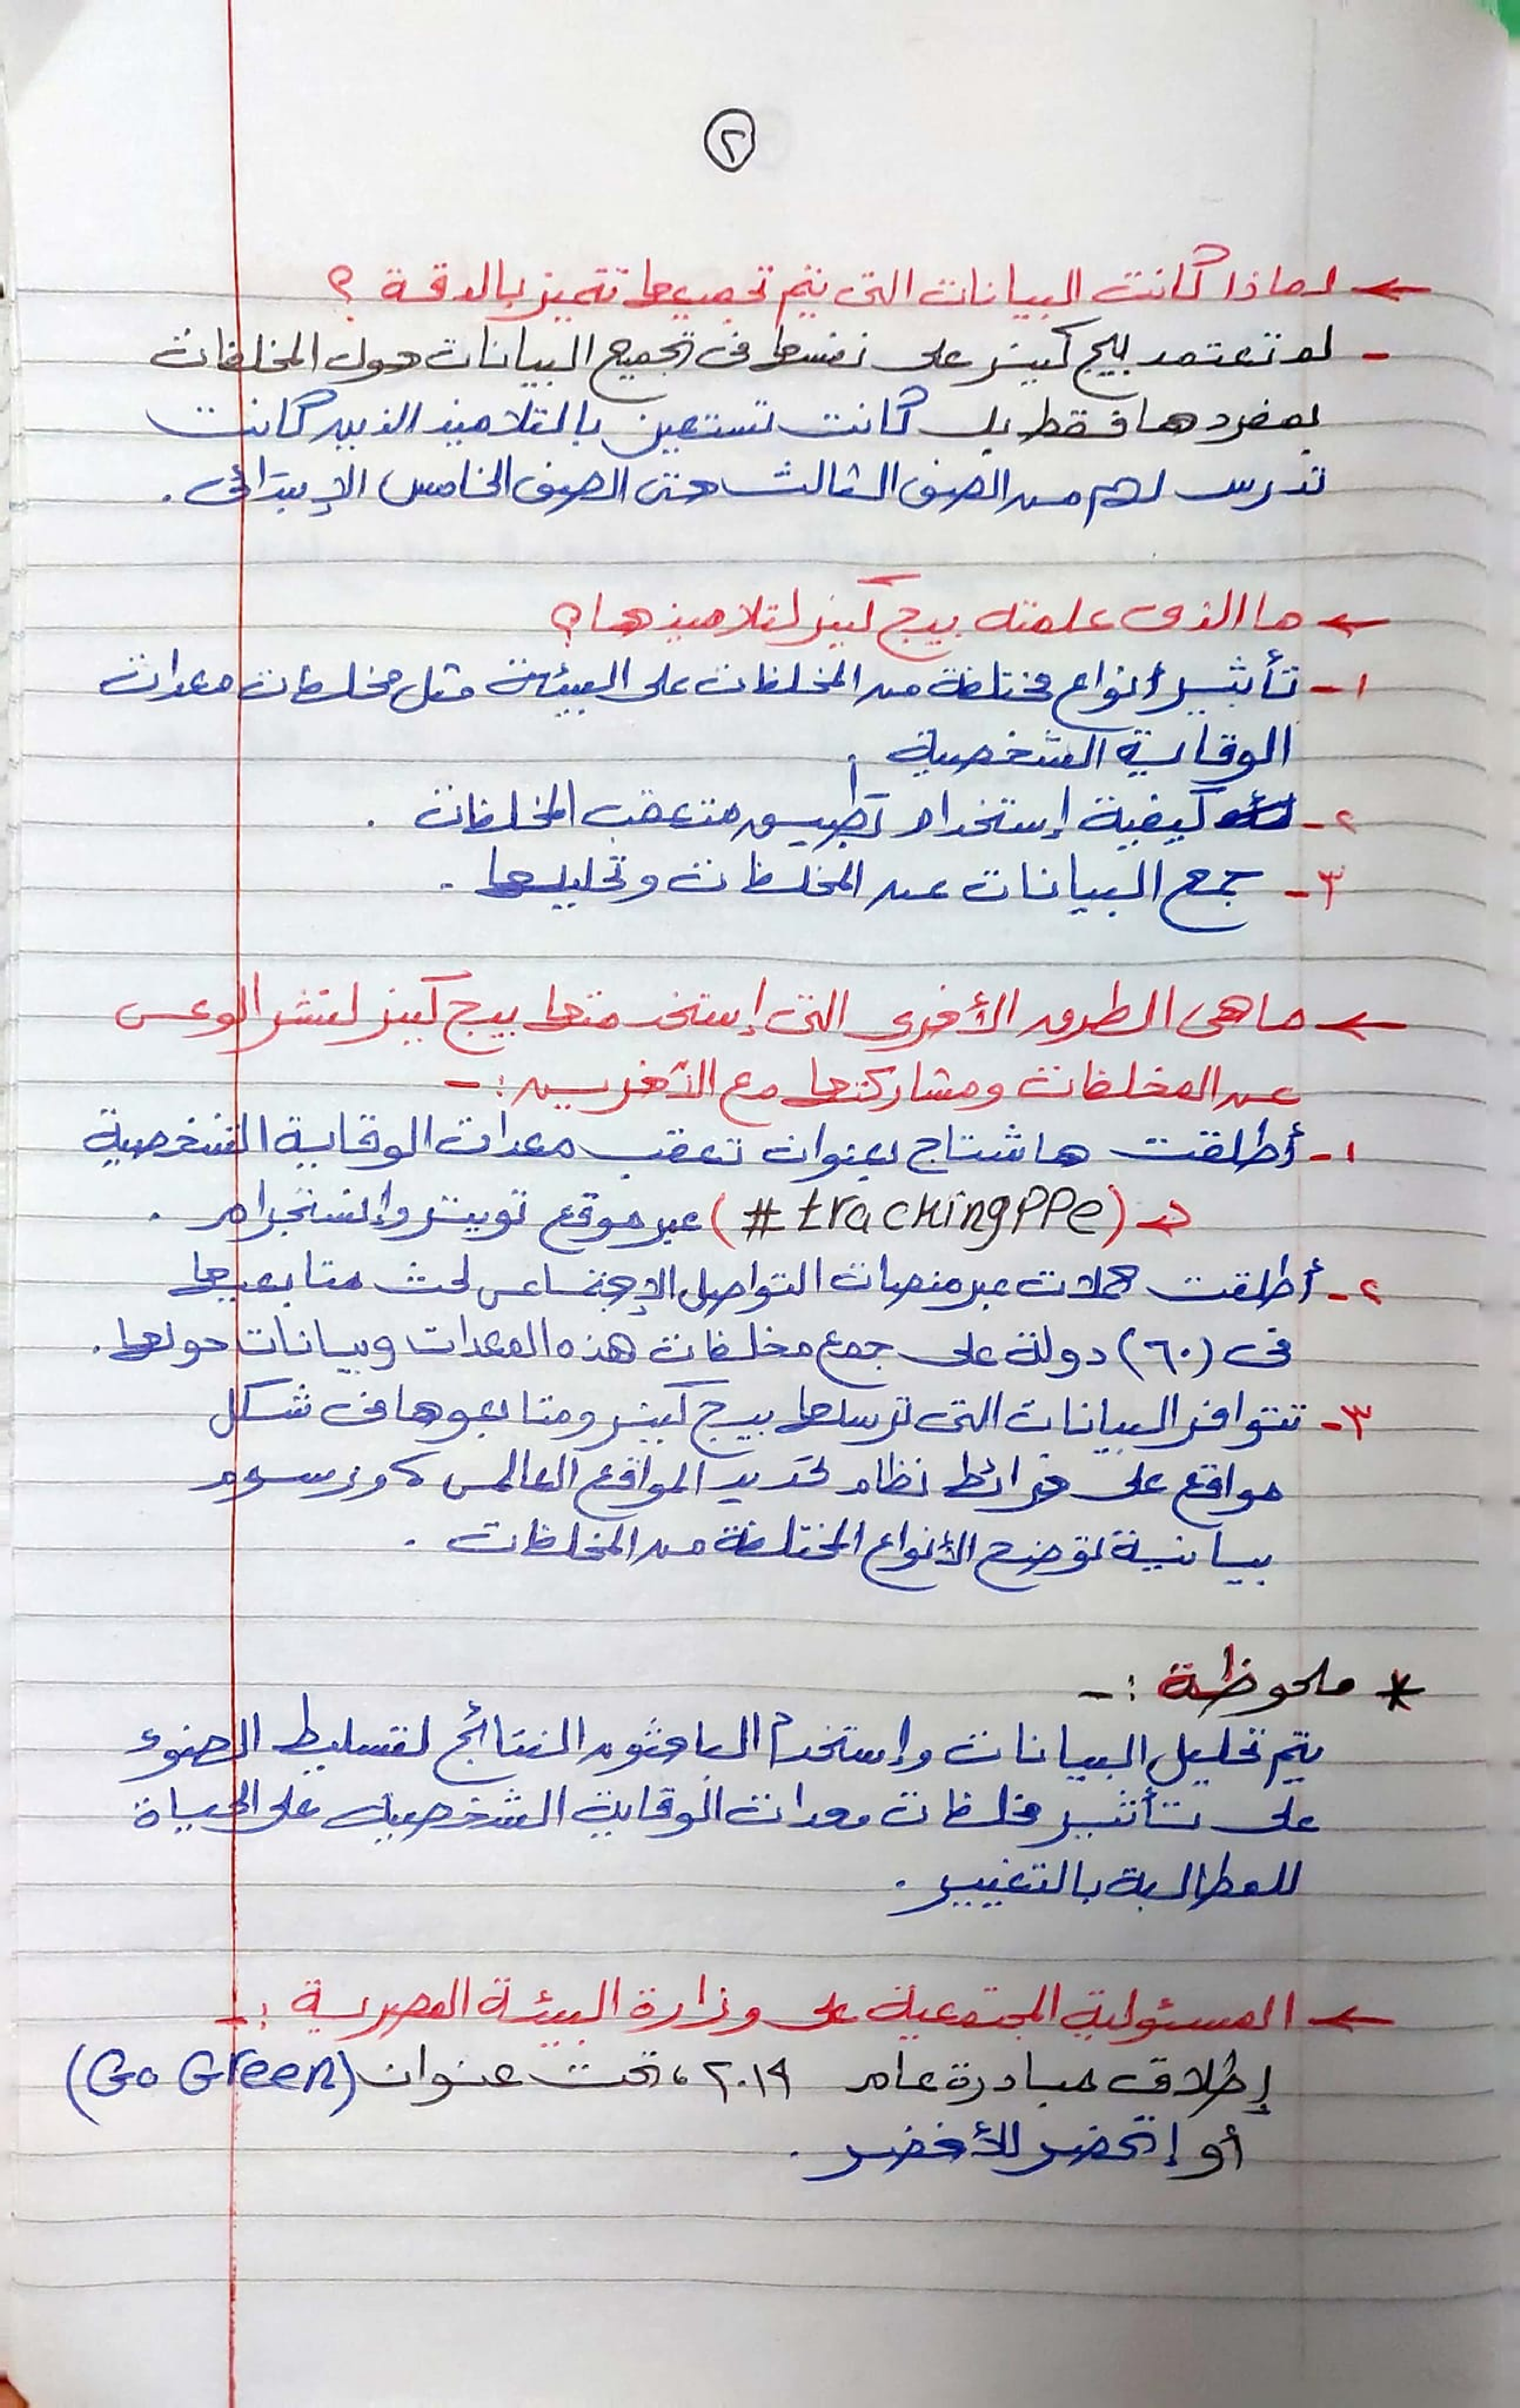 ٢
← لماذا كانت البيانات التى يتم تجميعها تتميز بالدقة ؟
- لم تعتمد بيج كبنر على نفسها فى تجميع البيانات حول المخلفات
بمفردها فقط بل كانت تستعين بالتلاميذ الذين كانت
تدرس لهم من الصف الثالث حتى الصف الخامس الإبتدائى .
← ما الذى علمته بيج كبنر لتلاميذها ؟
١- تأثير أنواع مختلفة من المخلفات على البيئة مثل مخلفات معدات
الوقاية الشخصية .
٢- كيفية إستخدام تطبيق متعقب المخلفات .
٣- جمع البيانات عن المخلفات وتحليلها .
← ما هى الطرق الأخرى التى إستخدمتها بيج كبنر لنشر الوعى
عن المخلفات ومشاركتها مع الآخرين :-
١- أطلقت هاشتاج بعنوان تعقب معدات الوقاية الشخصية
=> (#trackingPPe) عبر موقع تويتر وإنستجرام .
٢- أطلقت حملات عبر منصات التواصل الإجتماعى لحث متابعيها
فى (٦٠) دولة على جمع مخلفات هذه المعدات وبيانات حولها .
٣- تتوافر البيانات التى ترسلها بيج كبنر ومتابعوها فى شكل
مواقع على خرائط نظام تحديد المواقع العالمى ، ورسوم
بيانية توضح الأنواع المختلفة من المخلفات .
* ملحوظة :-
يتم تحليل البيانات وإستخدم الباحثون النتائج لتسليط الضوء
على تأثير مخلفات معدات الوقاية الشخصية على الحياة
للمطالبة بالتغيير .
← المسئولية المجتمعية على وزارة البيئة المصرية :-
إطلاق مبادرة عام ٢٠١٩ ، تحت عنوان (Go Green)
أو إتحضر للأخضر .